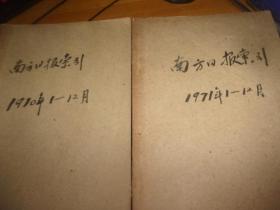 南方日报索引
1970年1—12月
南方日报索引
1971年1—12月